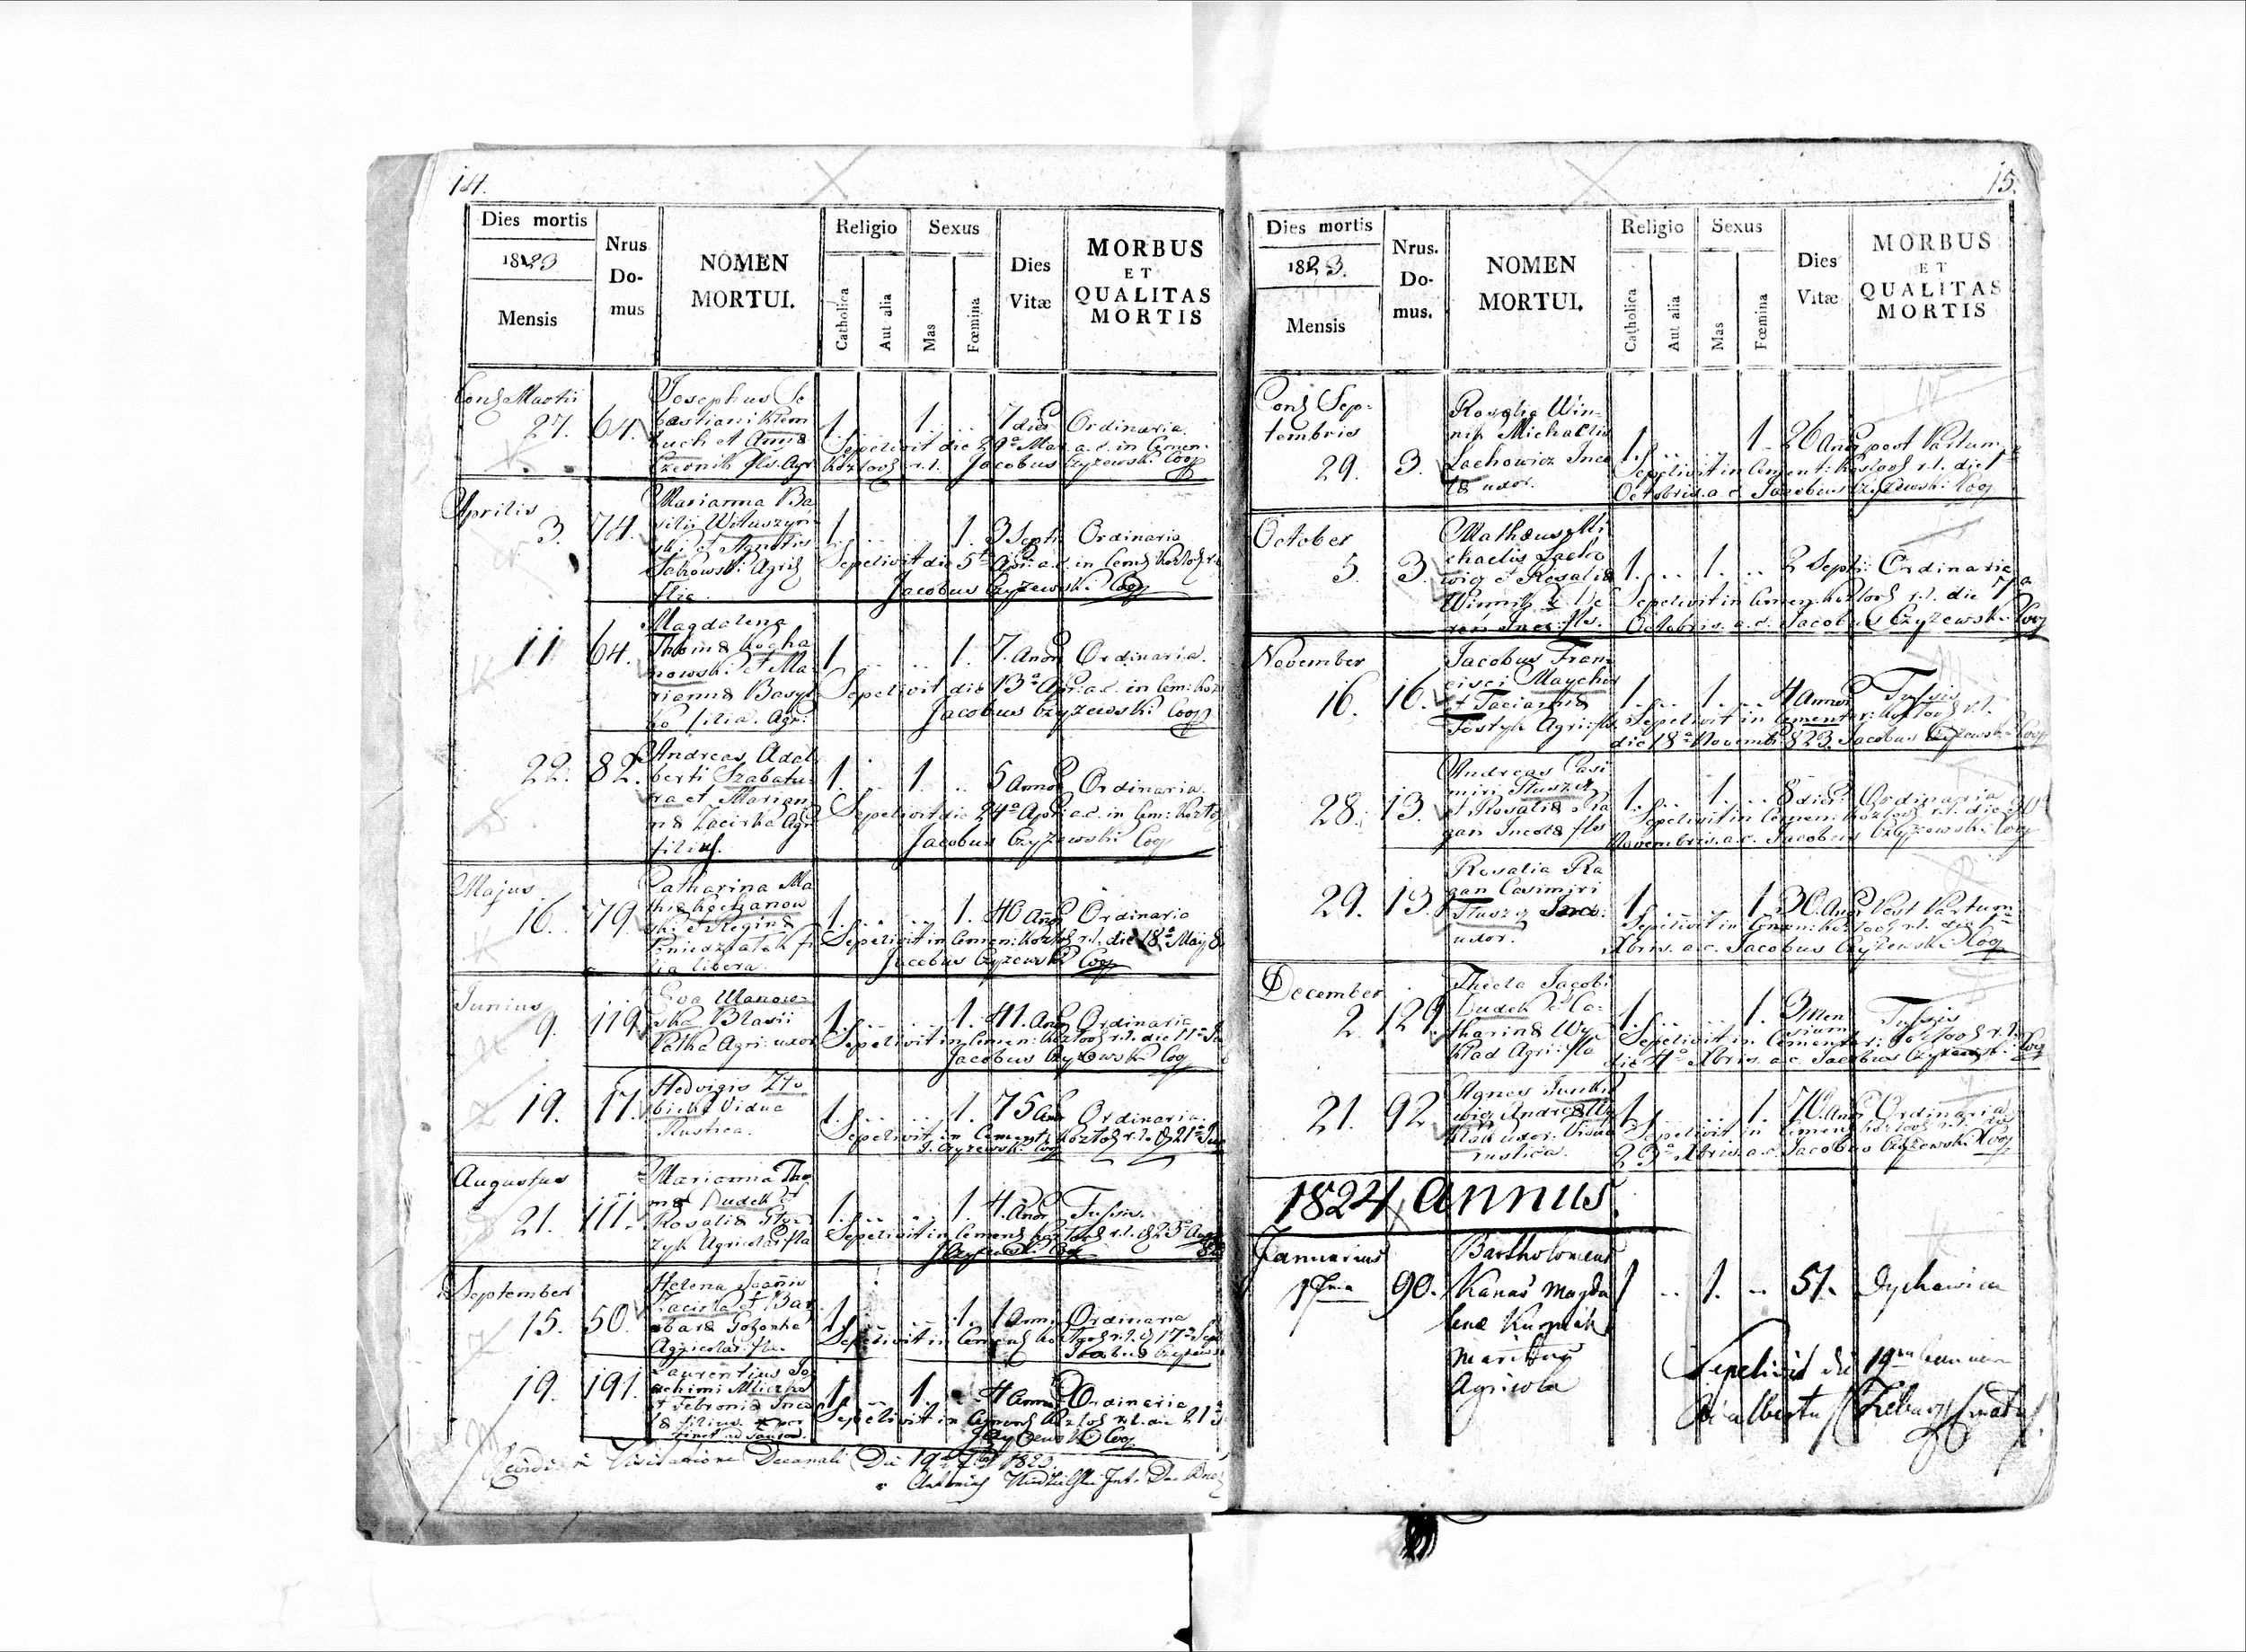 14.
Dies mortis
1823
Mensis
Nrus
Do-
mus
NOMEN
MORTUI.
Religio
Catholica
Aut alia
Sexus
Mas
Fœmina
Dies
Vitæ
MORBUS
ET
QUALITAS
MORTIS
Martii
27.
64.
Josephus Se
bastiani Klem
buch et Annæ
Czernik fls. Agr
1. 1. 7 dier Ordinaria.
Sepelivit die 29a Mar. a.c. in Cemen:
Jacobus Czyżewski Coop
Aprilis
3.
74.
Marianna Ba
silii Wituszyń
ski et Agnetis
Sakowski Agric
flia.
1. 1. 3 Septi Ordinaria
Sepelivit die 5ta Apri: a.c. in Cem
Jacobus Czyżewski Coop
11
64.
Magdalena
Thomæ Kocha
nowski et Ma
riannæ Basyl
ko filia. Agri:
1 1. 7. Anor Ordinaria.
Sepelivit die 13a Apr: a.c. in Cem: Kozł
Jacobus Czyżewski Coop
22.
82.
Andreas Adal
berti Szabatu
ra et Marian
næ Zacirka Agri
filius.
1. 1 5 Annor Ordinaria.
Sepelivit die 24a Apr: a.c. in Cem: Kozło
Jacobus Czyżewski Coop
Majus
16.
79.
Catharina Ma
thiæ Kochanow
ski et Reginæ
Poniedziałek fi
lia libera.
1. 1. 40 Anor Ordinaria
Sepelivit in Cemen: Kozłoł r.l. die 18a Maÿ 8
Jacobus Czyżewski Coop
Junius
9.
119.
Eva Ulanow-
ska Blasii
Patka Agri: uxor
1. 1. 41. Anor Ordinaria
Sepelivit in Cemen: Kozłoł r.l. die 11a Ju
Jacobus Czyżewski Coop
19.
17.
Hedvigis Zło
bicka Vidua
Rustica.
1. 1. 75 Anor Ordinaria.
Sepelivit in Cement: Kozłoł r.l. 21a Jun
J. Czyżewski Coop
Augustus
21.
111.
Marianna Tho
mæ Dudek et
Rosaliæ
Agricolar: flia
1. 1. 4. Anor Tussis.
Sepelivit in Cemen Kozłoł r.l. 23a Aug
J. Czyżewski Coop
September
15.
50.
Helena Joannis
Zacirka et Bar
baræ
Agricolar: flia
1. 1. 1 Anni Ordinaria
Sepelivit in Cemen 17a Sept
Jacobus Czyżewski
19.
191.
Laurentius Jo
achimi
et Febroniæ Inco
læ filius.
1. 1. 4 Annor Ordinaria
Sepelivit in Cemen Kozłoł r.l. die 21a
J. Czyżewski Coop
Visitatione Decanali Die 19a 7bris 1823.
15.
Dies mortis
1823.
Mensis
Nrus.
Do-
mus.
NOMEN
MORTUI.
Religio
Catholica
Aut alia
Sexus
Mas
Fœmina
Dies
Vitæ
MORBUS
ET
QUALITAS
MORTIS
Sep-
tembris
29.
3.
Rosalia Win-
nik Michaelis
Lachowicz Inco
læ uxor.
1. 1 26 Anor post Partum
Sepelivit in Cement: Kozłoł r.l. die 1a
Octobris. a.c. Jacobus Czyżewski Coop
October
5.
3.
Mathæus Mi
chaelis Lacho
wicz et Rosaliæ
Winnik
1. 1. 2 Septi: Ordinaria
Sepelivit in Cemen: Kozłoł r.l. die 7a
Octobris. a.c. Jacobus Czyżewski Coop
November
16.
16.
Jacobus Fran-
cisci Maycher
et Tacianæ
Agri: fls
1. 1. 4 Annor Tussis
Sepelivit in Cementer: Kozłoł r.l.
die 18a Novemb: 823. Jacobus Czyżewski Coop
28.
13.
Andreas Casi
miri Tłuszcz
et Rosaliæ Ra
gan Incolæ fls
1. 1. 8 dier Ordinaria
Sepelivit in Cemen: Kozłoł r.l. die 30a
Novembris. a.c. Jacobus Czyżewski Coop
29.
13.
Rosalia Ra
gan Casimiri
Tłuszcz Inco:
uxor.
1. 1. 30. Anor Post Partum
Sepelivit in Cemen: Kozłoł r.l. die 1a
Xbris. a.c. Jacobus Czyżewski Coop
December
2.
129.
Thecla Jacobi
Dudek et Ca-
tharinæ Wy
kład Agri: flia
1. 1. 3 Men
sium Tussis
Sepelivit in Cementer: Kozłoł r.l.
die 4a Xbris. a.c. Jacobus Czyżewski Coop
21.
92.
Agnes
Andreæ Wy
kład uxor: Vidua
rustica.
1. 1. 70. Anor Ordinaria
Sepelivit in Cemen Kozłoł r.l. die
23a Xbris. a.c. Jacobus Czyżewski Coop
1824 Annus.
Januarius
90.
Bartholomeus
Kanas Magda
lenæ Kurpiák
maritus
Agricola
1 1. 51. Dychawica
Sepelivit die 19
Adalbertus